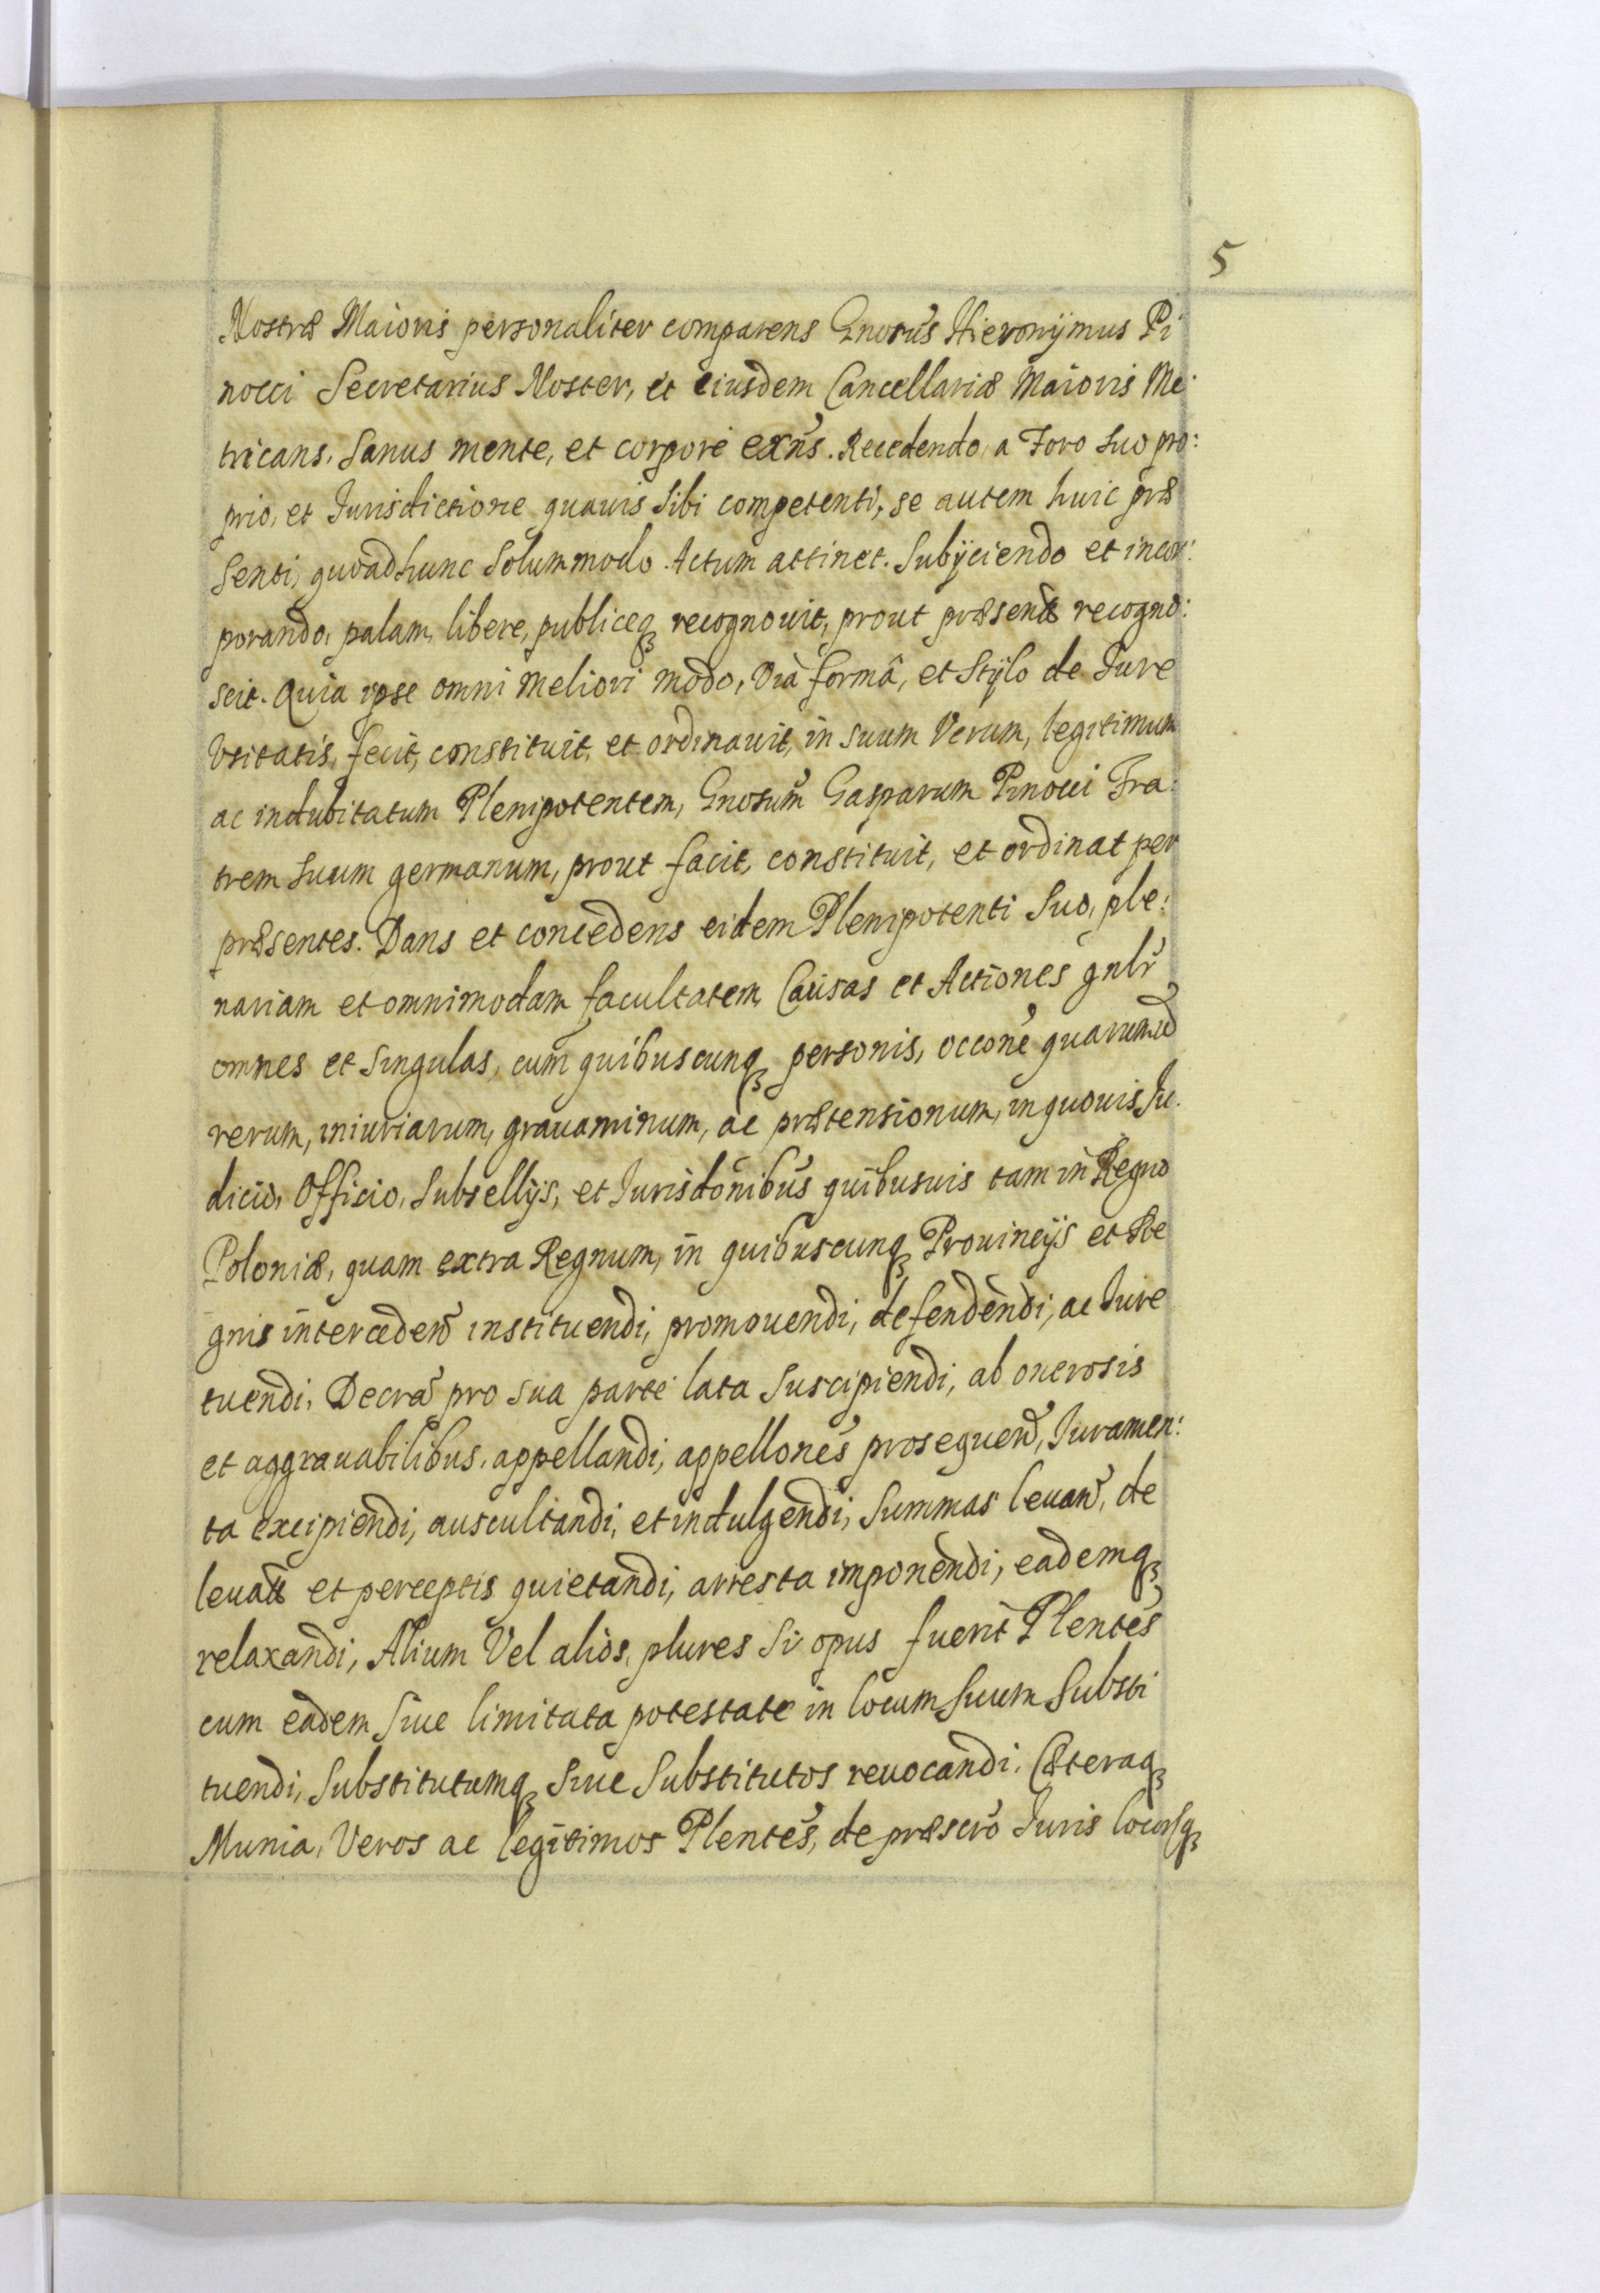 5
Nostræ Maioris personaliter comparens Gnosus Hieronÿmus Pi
nocci Secretarius Noster, et eiusdem Cancellariæ Maioris Me:
tricans, Sanus mente, et corpore exñs. Recedendo, a Foro suo pro:
prio, et Jurisdictione quauis sibi competenti, se autem huic præ
senti, quoad hunc Solummodo Actum attinet. Subÿciendo et incor:
porando, palam, libere, publiceq recognouit, prout præsentibus recogno:
scit. Quia ipse omni meliori modo, Viâ formâ, et Stÿlo de Jure
Vsitatis, fecit, constituit, et ordinauit, in suum Verum, legitimum
ac indubitatum Plenipotentem, Gnosum Gasparum Pinocci Fra:
trem suum germanum, prout facit, constituit, et ordinat per
præsentes. Dans et concedens eidem Plenipotenti Suo, ple:
nariam et omnimodam facultatem, Causas et Actiones gnlr
omnes et Singulas, cum quibuscunq personis, occone quarumuis
rerum, iniuriarum, grauaminum, ac prætensionum, in quouis Ju:
dicio, Officio, Subsellÿs, et Jurisdonibus quibusuis tam in Regno
Poloniæ, quam extra Regnum, in quibuscunq Prouincÿs et Re
gnis intercedend instituendi, promouendi, defendendi, ac Jure
tuendi, Decra pro sua parte lata Suscipiendi, ab onerosis
et aggrauabilibus, appellandi, appellones prosequend, Juramen:
ta excipiendi, auscultandi, et indulgendi, Summas leuand, de
leuatis et perceptis quietandi, arresta imponendi, eademq
relaxandi, Alium Vel alios, plures Si opus fuerit Plentes
cum eadem Siue limitata potestate in locum Suum Substi
tuendi, Substitutumq Siue Substitutos reuocandi. Cæteraq
Munia, Veros ac legitimos Plentes, de præscro Juris locorsq